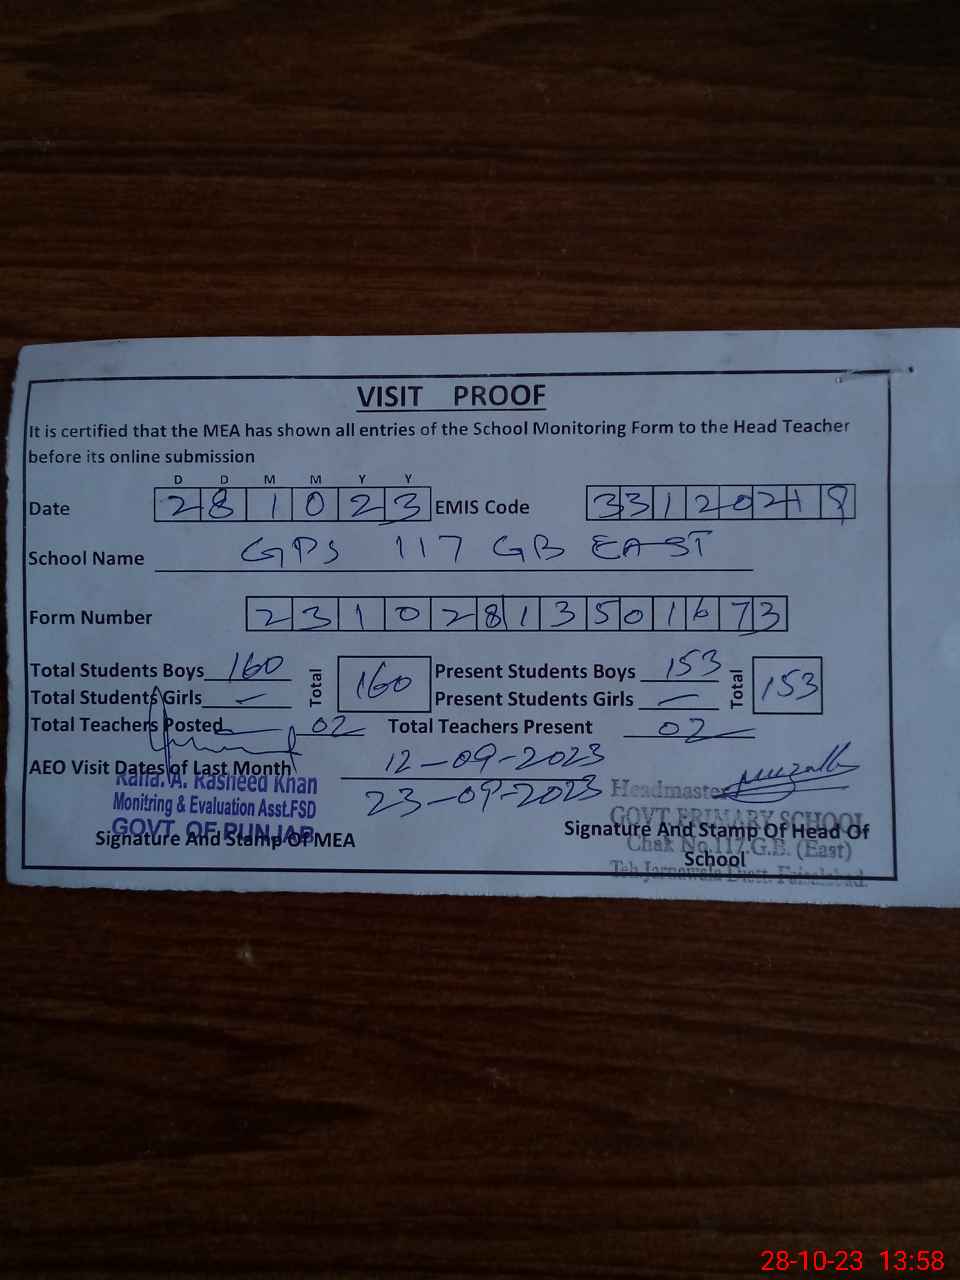 VISIT PROOF
It is certified that the MEA has shown all entries of the School Monitoring Form to the Head Teacher
before its online submission
D D M M Y Y
Date 28 10 23 EMIS Code 33120218
School Name GPS 117 GB EAST
Form Number 23102813501673
Total Students Boys 160 Total 160 Present Students Boys 153 Total 153
Total Students Girls — Present Students Girls —
Total Teachers Posted 02 Total Teachers Present 02
AEO Visit Dates of Last Month 12-09-2023
23-09-2023
Rana. A. Rasheed Khan
Monitring & Evaluation Asst.FSD
GOVT. OF PUNJAB
Signature And Stamp Of MEA
Headmaster
GOVT PRIMARY SCHOOL
Chak No.117.G.B. (East)
Teh Jaranwala Distt. Faisalabad.
Signature And Stamp Of Head Of
School
28-10-23 13:58